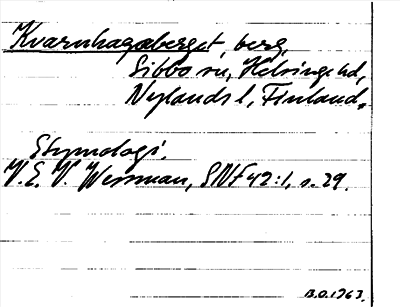 Kvarnhagaberget, berg,
Sibbo sn, Helsinge hd,
Nylands l, Finland.
Etymologi.
V.E.V. Wessman, SNF 42:1, s. 29.
B.O. 1963.